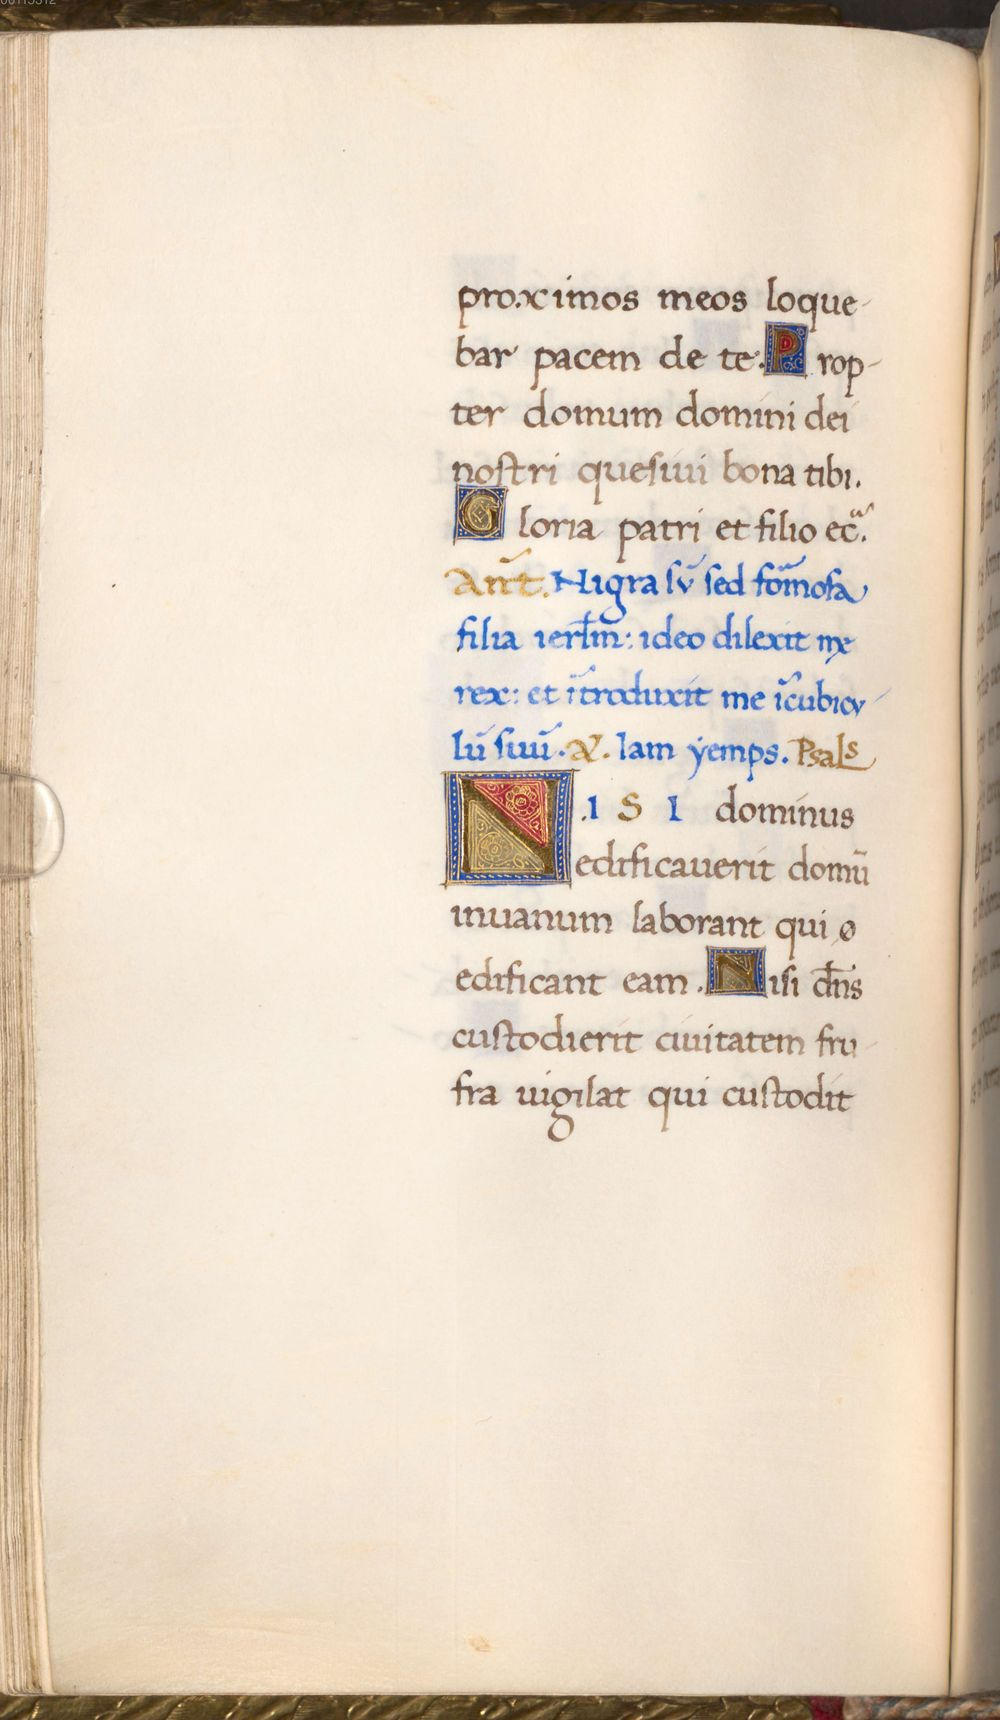 proximos meos loque-
bar pacem de te. Prop-
ter domum domini dei
nostri quesiui bona tibi.
Gloria patri et filio ec̃.
Añt. Nigra sũ sed fõmosa
filia ierłm̃: ideo dilexit me
rex: et ĩtroduxit me ĩcubicu-
lũ suũ. Iam yemps. Psals
N.ISI dominus
edificauerit domũ
inuanum laborant qui
edificant eam. Nisi dñs
custodierit ciuitatem fru-
stra uigilat qui custodit